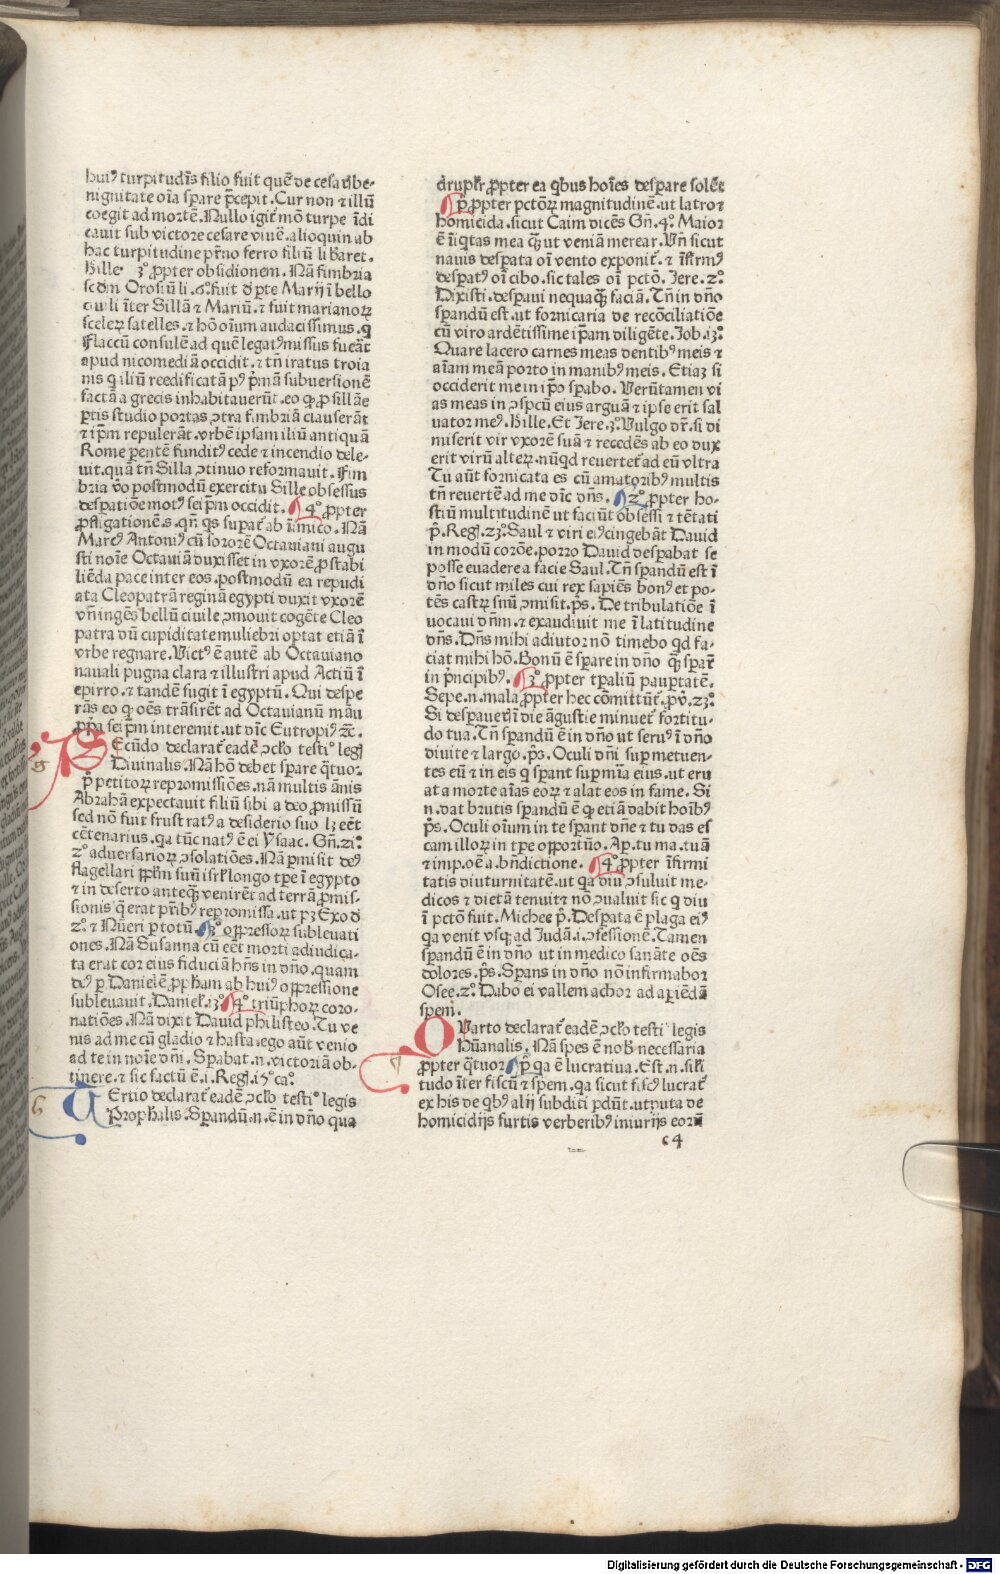 huiꝰ turpitudīs filio fuit quē de cesaris be-
nignitate oīa sꝑare p̄cepit. Cur non ⁊ illū
coegit ad mortē. Nullo igit̉ mō turpe īdi
cauit sub victore cesare viuē. alioquin ab
hac turpitudine pr̄no ferro filiū liƀaret.
Hille· 3º ꝓpter obsidionem. Nā fimbria
scd̄m Orosiū li. 6.º fuit ꝺ ꝑte Marij ī bello
ciuili īter Sillā ⁊ Mariū. ⁊ fuit marianoꝝ
sceleꝝ satelles. ⁊ hō oīum audacissimus. q
Flaccū consulē ad quē legatꝰ missus fuēat
apud nicomediā occidit. ⁊ tn̄ iratus troia
nis q iliū reedificatā pꝰ p̄mā subuersionē
factā a grecis inhabitauerūt. eo ꝙ ꝓ sillāe
ꝑtis studio portas ꝯtra fimbriā clauserāt
⁊ ip̄m repulerāt. vrbē ipsam iliū antiquā
Rome ꝑentē funditꝰ cede ⁊ incendio dele-
uit. quā tn̄ Silla ꝯtinuo reformauit. Fim
bria v̄o postmodū exercitu Sille obsessus
desꝑatiōe motꝰ seip̄m occidit. 4º ꝓpter
ꝓfligationē s. qn̄ qs suꝑat̉ ab īimico. Nā
Marcꝰ Antoniꝰ cū sororē Octauiani augu
sti noīe Octauiā duxisset in vxorē ꝓ stabi
liēda pace inter eos. postmodū ea repudi
ata Cleopatrā reginā egypti duxit vxorē
vn̄ ingēs bellū ciuile ꝯmouit cogēte Cleo
patra dū cupiditate muliebri optat etiā ī
vrbe regnare. Victꝰ ē autē ab Octauiano
nauali pugna clara ⁊ illustri apud Actiū ī
epirro. ⁊ tandē fugit ī egyptū. Qui despe
rās eo ꝙ oēs trāsirēt ad Octauianū manu
ꝓp̄a seip̄m interemit. ut dīc Eutropiꝰ ⁊c̄.
SEcūdo declarat̉ eadē ꝯclo testiº legꝭ
Diuinalis. Nā hō debet sꝑare q̄tuor.
p̄ petitoꝝ repromissiōes. nā multis ānis
Abrahā expectauit filiū sibi a deo ꝓmissū
sed nō fuit frustratꝰ a desiderio suo lꝫ eēt
cētenarius. qa tūc natꝰ ē ei Ysaac. Gn̄. 21º
2º aduersarioꝝ ꝯsolatiōes. Nā ꝑmisit deꝰ
flagellari pplm̄ suū isrl̄ longo tp̄e ī egypto
⁊ in deserto anteqꝫ venirēt ad terrā ꝓmis-
sionis q̄ erat pr̄ibꝰ repromissa. ut pꝫ Exo ꝺ
2º. ⁊ Nūeri ꝑ totū. 3º oppressoꝝ subleuati
ones. Nā Susanna cū eēt morti adiudica-
ta erat cor eius fiduciā hn̄s in dn̄o. quam
deꝰ ꝑ Danielē ꝓphām ab huiꝰ oppressione
subleuauit. Daniel̉. 13º 4º triūphoꝝ coro-
natiōes. Nā dixit Dauid philisteo. Tu ve
nis ad me cū gladio ⁊ hasta. ego aūt venio
ad te in noīe dn̄i. Sꝑabat .n. victoriā ob-
tinere. ⁊ sic factū ē .i. Regꝭ. 17º caº.
TErtio declarat̉ eadē ꝯclo testiº legis
Prophalis. Sꝑandū .n. ē in dn̄o qua
drupl̉r ꝓpter ea qbus hoīes desꝑare solēt
p̄ ꝓpter pctōꝝ magnitudinē. ut latro ⁊
homicida. sicut Caim dicēs Gn̄. 4º. Maior
ē īiqtas mea qꝫ ut veniā merear. Vn̄ sicut
nauis desꝑata oī vento exponit̉. ⁊ īfirmꝰ
desꝑatꝰ oī cibo. sic tales oī pctō. Jere. 2º.
Dixisti. desꝑaui nequaqꝫ faciā. Tn̄ in dn̄o
sꝑandū est. ut fornicaria de recōciliatiōe
cū viro ardētissime ip̄am diligēte. Job. 13º
Quare lacero carnes meas dentibꝰ meis ⁊
aīam meā porto in manibꝰ meis. Etiaꝫ si
occiderit me in ip̄o sꝑabo. Verūtamen vi
as meas in ꝯspcū eius arguā ⁊ ipse erit sal
uator meꝰ. Hille. Et Jere. 3º. Vulgo dr̄. si di
miserit vir vxorē suā ⁊ recedēs ab eo dux
erit virū alteꝝ. nūqd reuertet̉ ad eū vltra
Tu aūt fornicata es cū amatoribꝰ multis
tn̄ reuertē ad me dīc dn̄s. 2º ꝓpter ho-
stiū multitudinē ut faciūt obsessi ⁊ tētati
p̄. Regꝭ. 23º Saul ⁊ viri eiꝰ cingebāt Dauid
in modū corōe. porro Dauid desꝑabat se
posse euadere a facie Saul. Tn̄ sꝑandū est ī
dn̄o sicut miles cui rex sapiēs bonꝰ et po-
tēs castꝝ suū ꝯmisit. p̄s. De tribulatiōe ī
uocaui dn̄m. ⁊ exaudiuit me ī latitudine
dn̄s. Dn̄s mihi adiutor nō timebo qd fa-
ciat mihi hō. Bonū ē sꝑare in dn̄o qꝫ sꝑar̄
in p̄ncipibꝰ. 3º ꝓpter tꝑaliū pauꝑtatē.
Sepe .n. mala ꝓpter hec cōmittūt̉. ꝓv̄. 23º.
Si desꝑauerꝭ ī die āgustie minuet̉ fortitu-
do tua. Tn̄ sꝑandū ē in dn̄o ut seruꝰ ī dn̄o
diuite ⁊ largo. p̄s. Oculi dn̄i suꝑ metuen-
tes eū ⁊ in eis q sꝑant suꝑ mīa eius. ut eru
at a morte aīas eoꝝ ⁊ alat eos in fame. Si
.n. dat brutis sꝑandū ē ꝙ etiā dabit hoībꝰ
p̄s. Oculi oīum in te sꝑant dn̄e ⁊ tu das es
cam illoꝝ in tp̄e opportūo. Aꝑ. tu ma. tuā
⁊ imp. oē a. bn̄dictione. 4º ꝓpter īfirmi
tatis diuturnitatē. ut qa diu ꝯsuluit me-
dicos ⁊ dietā tenuit ⁊ nō ꝯualuit sic q diu
ī pctō fuit. Michee p̄. Desꝑata ē plaga eiꝰ
qa venit vsqꝫ ad Judā .i. ꝯfessionē. Tamen
sꝑandū ē in dn̄o ut in medico sanāte oēs
dolores. p̄s. Sꝑans in dn̄o nō infirmabor
Osee. 2º. Dabo ei vallem achor ad aꝑiēdā
spem̄.
QVarto declarat̉ eadē ꝯclo testiº legis
Hūanalis. Nā spes ē nob̄ necessaria
ꝓpter q̄tuor p̄ qa ē lucratiua. Est .n. sil̉i
tudo īter fiscū ⁊ spem. qa sicut fiscꝰ lucrat̉
ex his de qbꝰ alij subditi ꝑdūt. utputa de
homicidijs furtis verberibꝰ iniurijs eorū
64
5
6
7
Digitalisierung gefördert durch die Deutsche Forschungsgemeinschaft - DFG